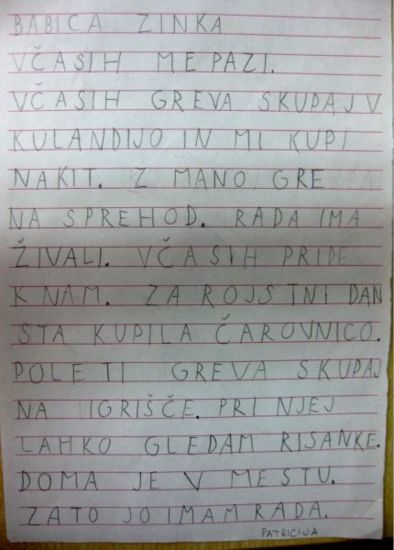 BABICA ZINKA
VČASIH ME PAZI.
VČASIH GREVA SKUPAJ V
KULANDIJO IN MI KUPI
NAKIT. Z MANO GRE
NA SPREHOD. RADA IMA
ŽIVALI. VČASIH PRIDE
K NAM. ZA ROJSTNI DAN
STA KUPILA ČAROVNICO.
POLETI GREVA SKUPAJ
NA IGRIŠČE. PRI NJEJ
LAHKO GLEDAM RISANKE.
DOMA JE V MESTU.
ZATO JO IMAM RADA.
PATRICIJA